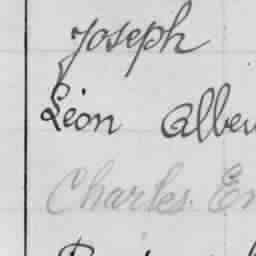 Joseph
Léon Alber
Charles. Em